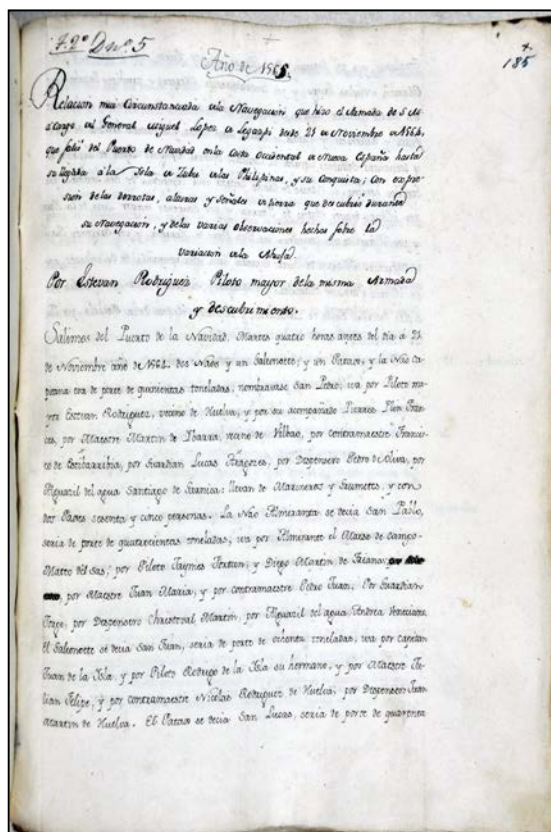 F. 2º D nº. 5
4.
185
Año de 1565.
Relacion mui Circunstanciada de la Navegacion que hizo el Armada de S. M.
a cargo del General Miguel Lopez de Legazpi desde 21 de Noviembre de 1564,
que salió del Puerto de Navidad en la Costa Occidental de Nueva España hasta
su llegada á la Isla de Zubu en las Philipinas, y su Conquista; con expre-
sion de las derrotas, alturas y señales de tierra que descubrió durante
su Navegacion, y de las varias observaciones hechas sobre la
variacion de la Abuja.
Por Estevan Rodriguez Piloto mayor de la misma Armada
y descubrimiento.
Salimos del Puerto de la Navidad, Martes quatro horas antes del dia á 21
de Noviembre año de 1564. dos Naos y un Galeonette; y un Patax, y la Não Ca-
pitana era de porte de quinientas toneladas, nombravase San Pedro; iva por Piloto ma-
yor Estevan Rodriguez, vecino de Huelva, y por su acompañado Pierres Plin Fran-
ces, por Maestre Martin de Ybarra, vecino de Vilbao, por contramaestre Francis-
co de Escibarribia, por Guardian Lucas Aragoces, por Despensero Pedro de Oliva, por
Alguazil del agua Santiago de Garnica: llevan de Marineros y Grumetes, y con
dos Pages sesenta y cinco personas. La Não Almiranta se decia San Pablo,
seria de porte de quatrocientas toneladas, iva por Almirante el Maese de Campo
Matteo del Sas; por Piloto Jaymes Fortun; y Diego Martin de Triana;
por Maestre Juan Maria, y por contramaestre Pedro Juan; Por Guardian
Jorge, por Despensero Christoval Martin, por Alguazil del agua Andrea Veneciano.
El Galeonette se decia San Juan, seria de porte de ochenta toneladas, iva por Capitan
Juan de la Isla, y por Piloto Rodrigo de la Isla su hermano, y por Maestre Ju-
lian Felipe, y por contramaestre Nicolas Rodriguez de Huelva; por Despensero Juan
Martin de Huelva. El Patax se decia San Lucas, seria de porte de quarenta